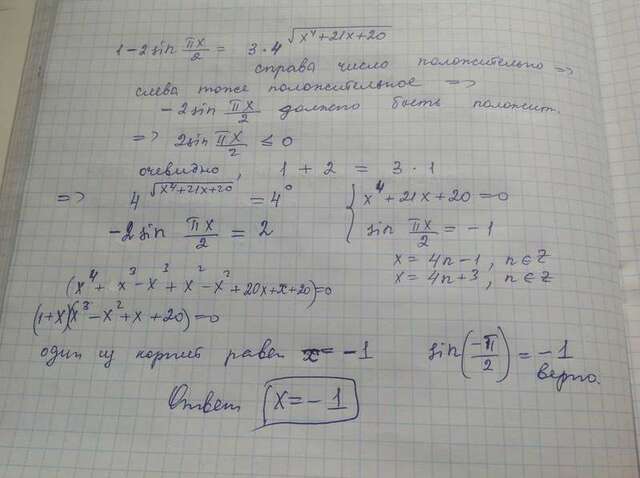 1 - 2 sin πx/2 = 3 · 4^√(x⁴+21x+20)
справа число положительно =>
слева тоже положительное =>
- 2 sin πx/2 должно быть положит.
=> 2 sin πx/2 ≤ 0
очевидно, 1 + 2 = 3 · 1
=> 4^√(x⁴+21x+20) = 4⁰
-2 sin πx/2 = 2
{ x⁴ + 21x + 20 = 0
sin πx/2 = -1
x = 4n - 1, n ∈ Z
x = 4n + 3, n ∈ Z
(x⁴ + x³ - x³ + x² - x² + 20x + x + 20) = 0
(1+x)(x³ - x² + x + 20) = 0
один из корней равен x = -1
sin(-π/2) = -1
верно.
Ответ x = -1